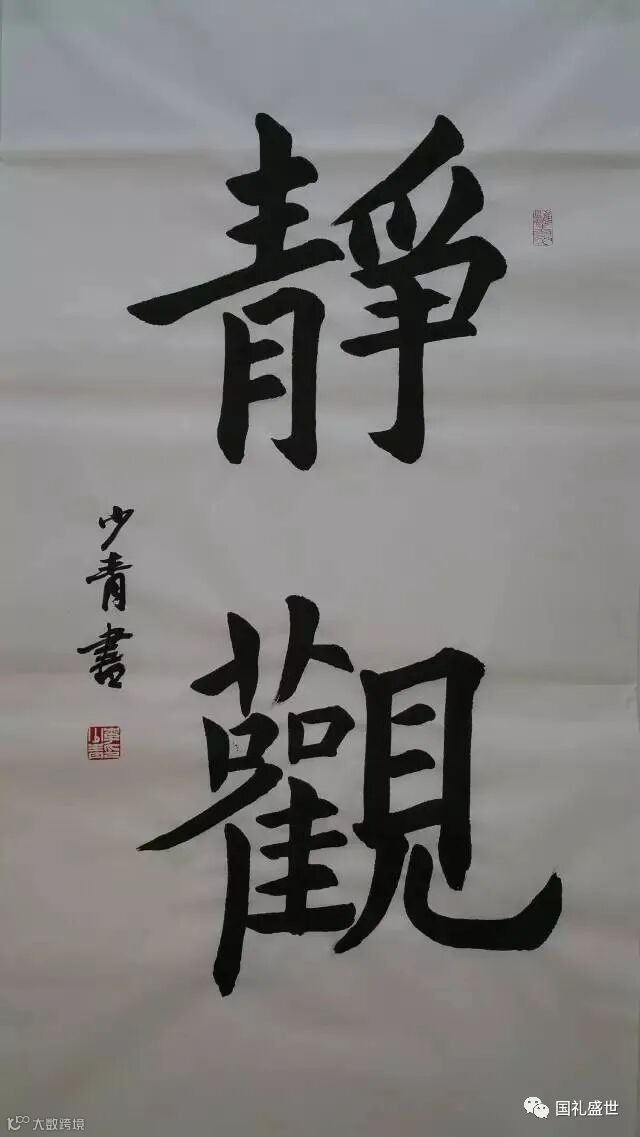 靜觀
少青書
大数跨境
国礼盛世